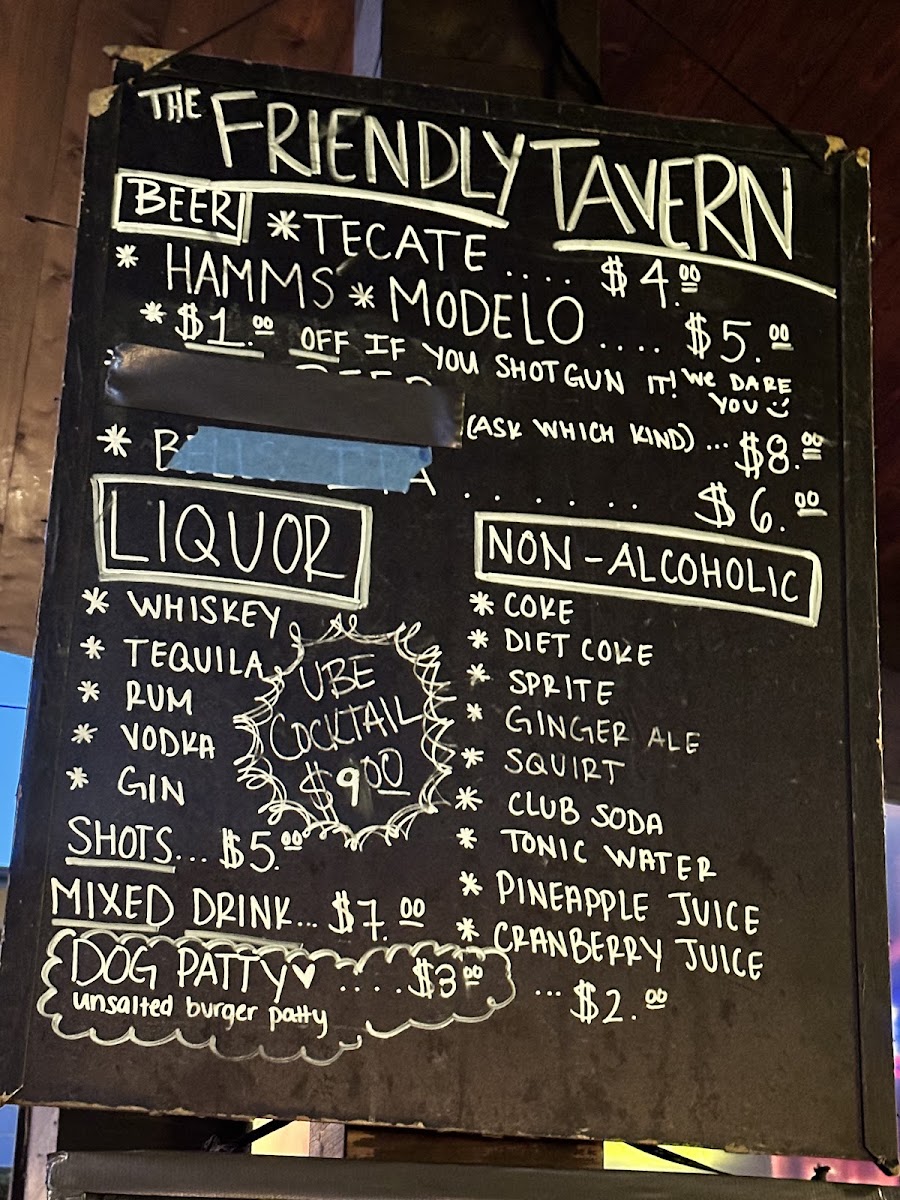 THE FRIENDLY TAVERN
BEER
* TECATE .... $4.00
* HAMMS * MODELO .... $5.00
* $1.00 OFF IF YOU SHOTGUN IT! WE DARE
YOU
(ASK WHICH KIND) ... $8.00
* ....... $6.00
LIQUOR
* WHISKEY
* TEQUILA
* RUM
* VODKA
* GIN
SHOTS... $5.00
MIXED DRINK... $7.00
UBE
COCKTAIL
$9.00
DOG PATTY♥ .... $3.00
unsalted burger patty
NON-ALCOHOLIC
* COKE
* DIET COKE
* SPRITE
* GINGER ALE
* SQUIRT
* CLUB SODA
* TONIC WATER
* PINEAPPLE JUICE
* CRANBERRY JUICE
... $2.00